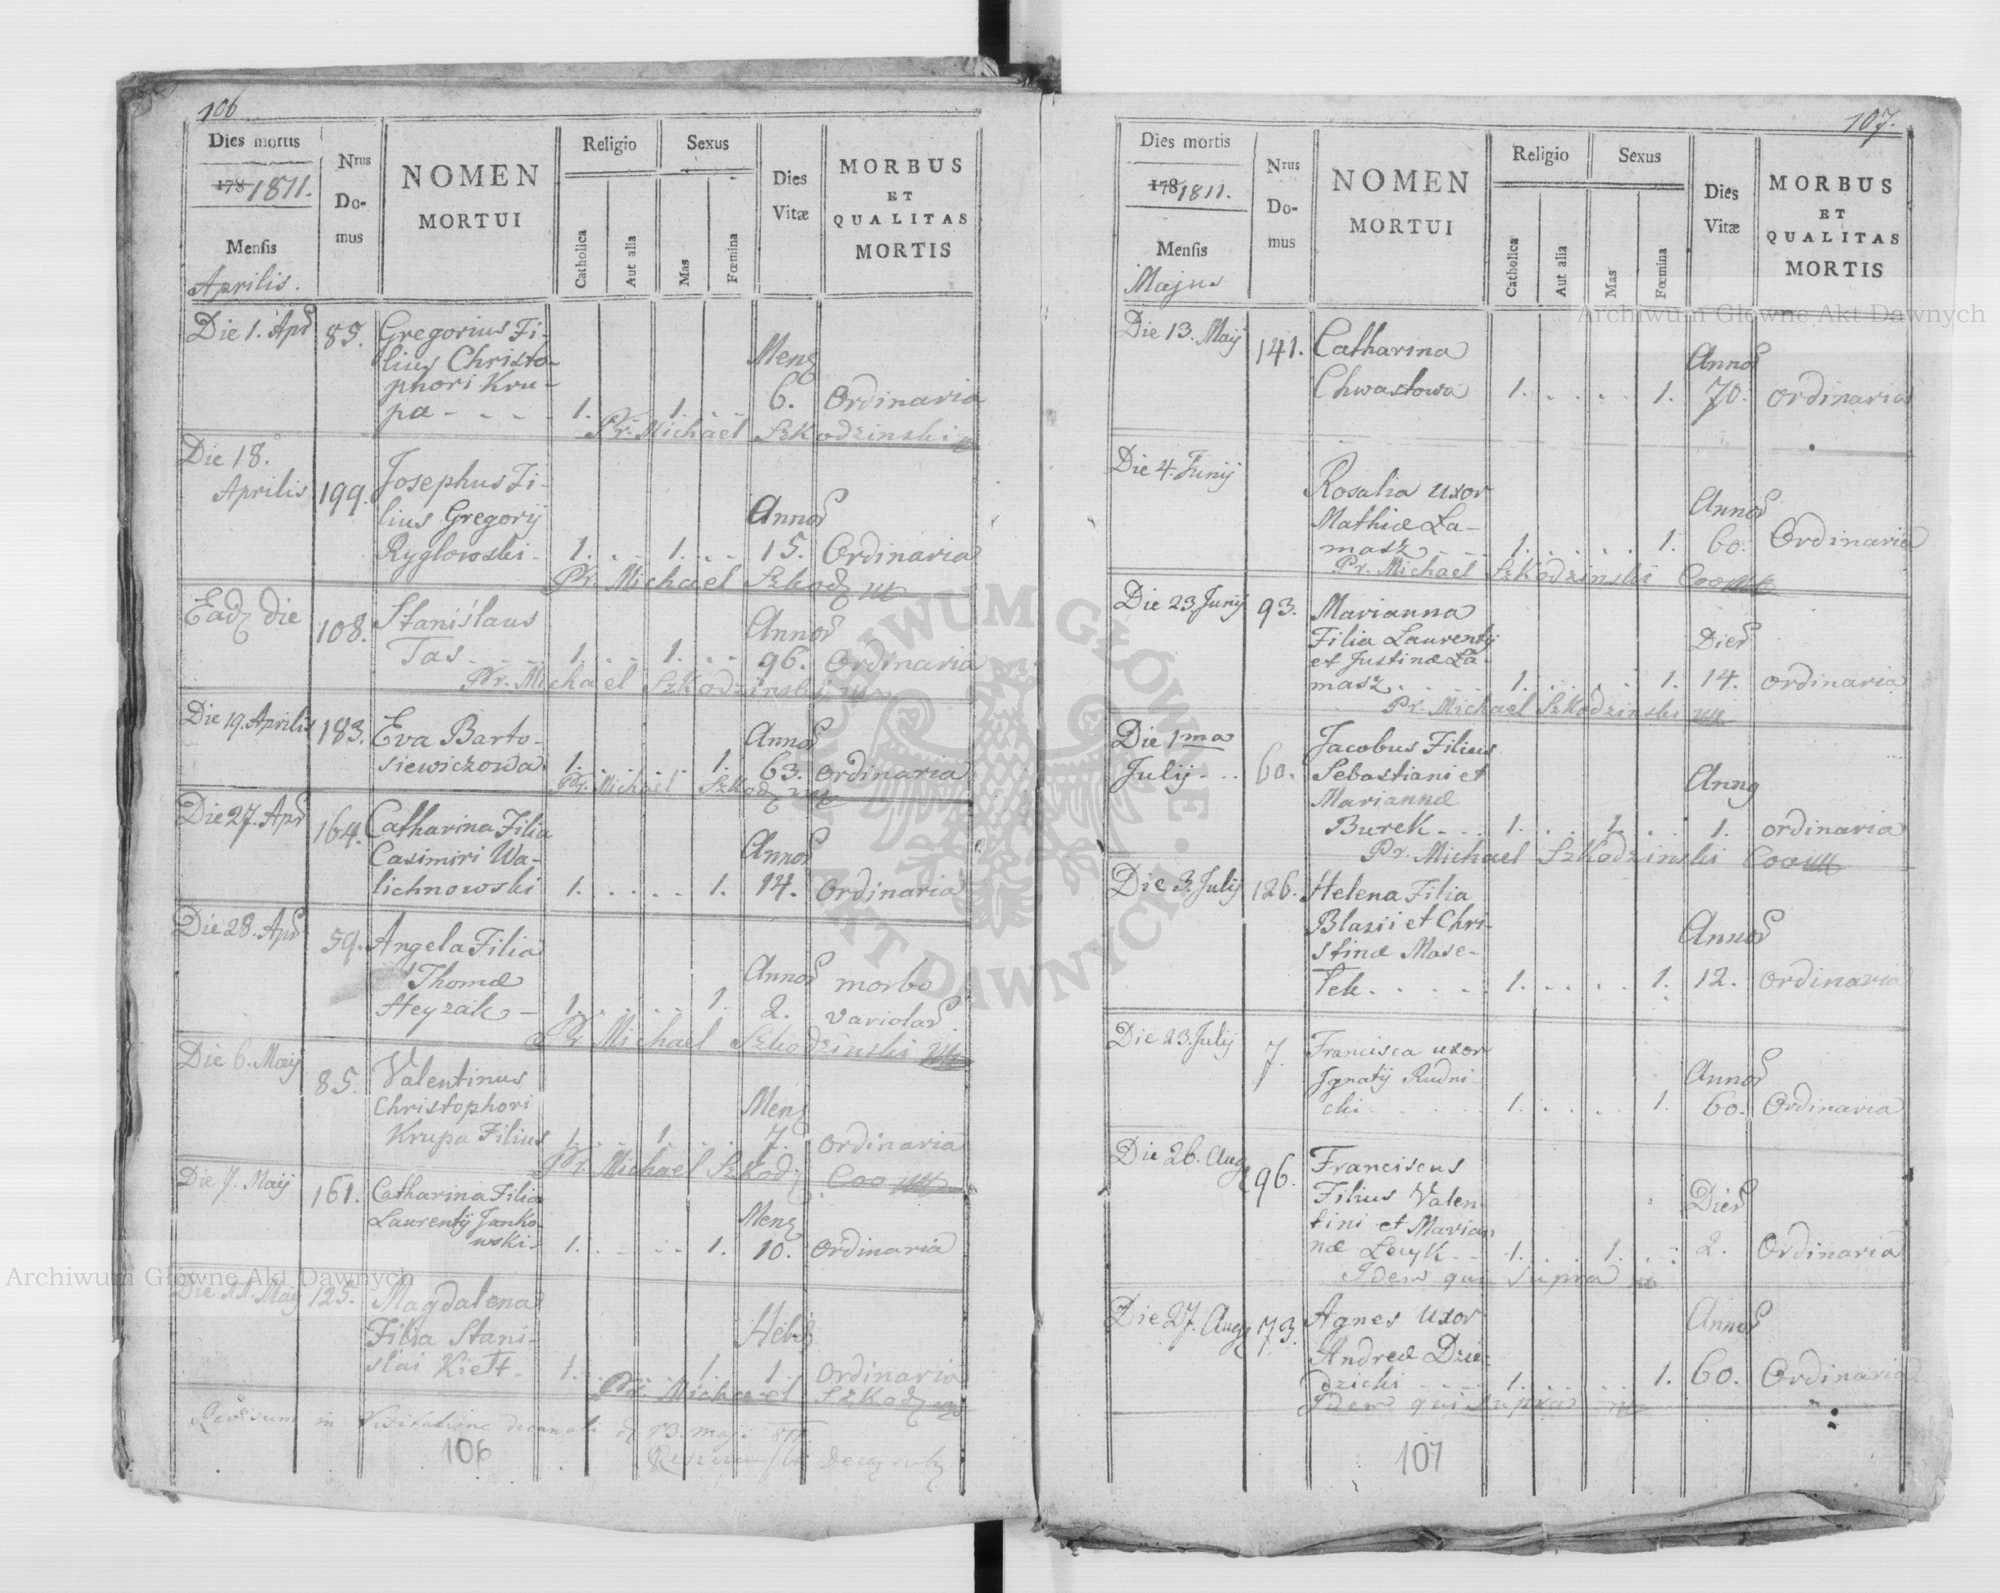 106
Dies mortis
178 1811.
Mensis
Aprilis.
Nrus Do-mus
NOMEN
MORTUI
Religio
Catholica
Aut alia
Sexus
Mas
Fœmina
Dies Vitæ
MORBUS
ET
QUALITAS
MORTIS
Die 1. Apr 85. Gregorius Fi-
lius Christo- Meng
phori Kru-
pa - - - - 1. 1. 6. Ordinaria
Pr. Michael Szkodzinski
Die 18.
Aprilis 199. Josephus Fi-
lius Gregorij Annos
Ryglowski - 1. 1. 15. Ordinaria
Pr. Michael Szkodz
Eadz die 108. Stanislaus Annos
Tas 1. 1. 96. Ordinaria
Pr. Michael Szkodzinski
Die 19. Aprilis 183. Eva Barto- Annos
siewiczowa 1. 1. 63. Ordinaria
Pr. Michael Szkodz
Die 27. Apr 164. Catharina Filia
Casimiri Wa- Annos
lichnowski 1. 1. 14. Ordinaria
Die 28. Apr 59. Angela Filia
Thomæ Annos morbo
Heyzak - 1. 1. 2. Variolar
Pr. Michael Szkodzinski
Die 6. Maij 85. Valentinus
Christophori Meng
Krupa Filius 1. 1. 7. Ordinaria
Pr. Michael Szkodz Coo
Die 7. Maij 161. Catharina Filia
Laurentij Janko- Meng
wski 1. 1. 10. Ordinaria
Die 11. Maij 125. Magdalena
Filia Stani- Hebd
slai Kiełt 1. 1. 1. Ordinaria
Pr. Michael Szkodz
Revisum in Visitatione decanali 13. maji
106
107.
Dies mortis
178 1811.
Mensis
Majus
Nrus Do-mus
NOMEN
MORTUI
Religio
Catholica
Aut alia
Sexus
Mas
Fœmina
Dies Vitæ
MORBUS
ET
QUALITAS
MORTIS
Die 13. Maij 141. Catharina Annos
Chwastowa 1. 1. 70. Ordinaria
Die 4. Junij Rosalia uxor
Mathiæ La- Annos
masz 1. 1. 60. Ordinaria
Pr. Michael Szkodzinski Coo
Die 23. Junij 93. Marianna
Filia Laurentij Dies
et Justinæ La-
masz 1. 1. 14. Ordinaria
Pr. Michael Szkodzinski
Die 1ma Jacobus Filius
Julij 60. Sebastiani et Anng
Mariannæ
Burek 1. 1. 1. ordinaria
Pr. Michael Szkodzinski Coo
Die 3. Julij 126. Helena Filia
Blasii et Chri- Annos
stinæ Mase-
Tek 1. 1. 12. Ordinaria
Die 23. Julij 7. Francisca uxor
Ignatij Rudni- Annos
cki 1. 1. 60. Ordinaria
Die 26. Aug 96. Franciscus
Filius Valen- Dies
tini et Marian
næ Lecyk 1. 1. 2. Ordinaria
Idem qui supra
Die 27. Aug 73. Agnes uxor Annos
Andreæ Dzie-
dzicki 1. 1. 60. Ordinaria
Idem qui supra
107
Archiwum Główne Akt Dawnych
Archiwum Główne Akt Dawnych
ARCHIWUM GŁÓWNE · AKT DAWNYCH ·